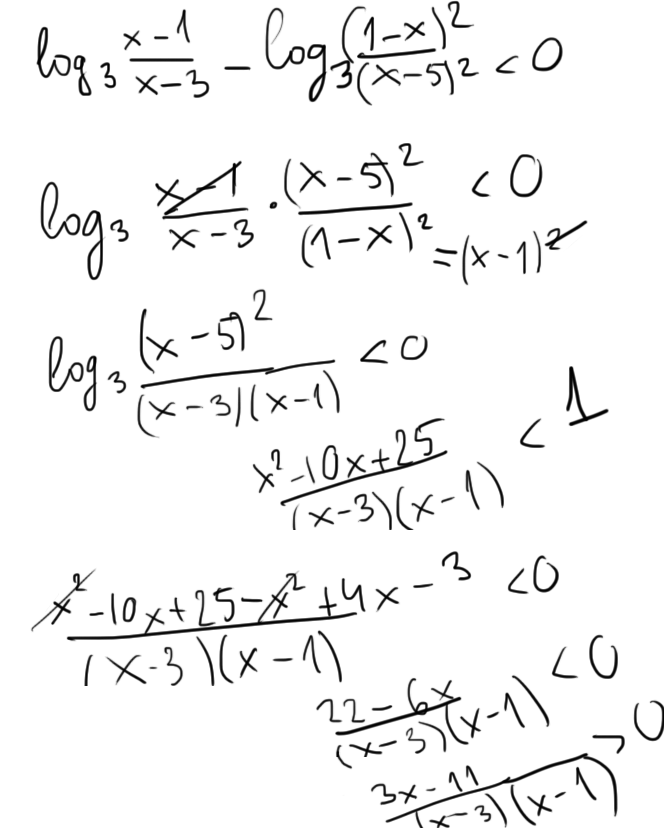 log₃ (x-1)/(x-3) - log₃ (1-x)²/(x-5)² < 0
log₃ (x-1)/(x-3) · (x-5)²/(1-x)² < 0
=(x-1)²
log₃ (x-5)²/((x-3)(x-1)) < 0
(x²-10x+25)/((x-3)(x-1)) < 1
(x²-10x+25-x²+4x-3)/((x-3)(x-1)) < 0
(22-6x)/((x-3)(x-1)) < 0
(3x-11)/((x-3)(x-1)) > 0